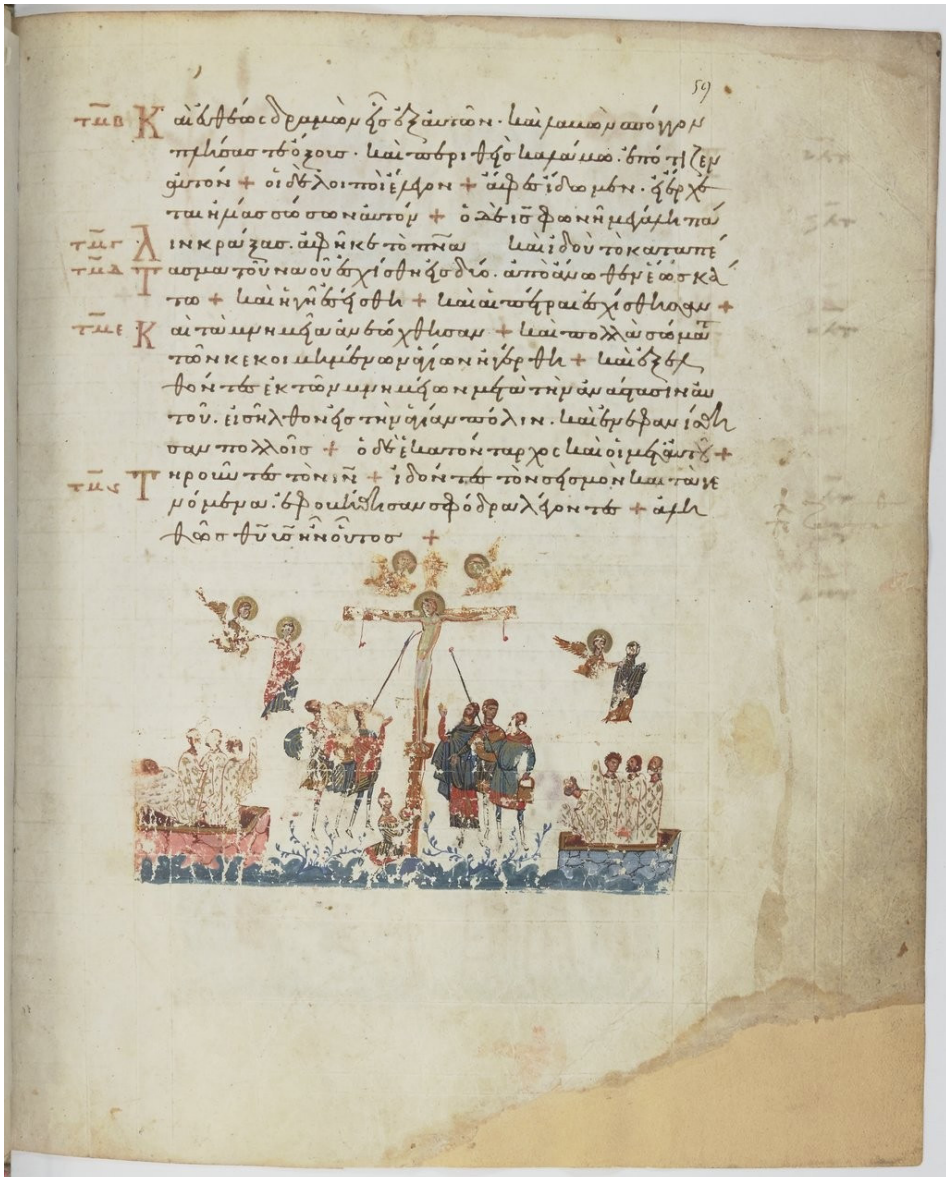 59
τμβ Καὶ εὐθέως δραμὼν εἷς ἐξ αὐτῶν · καὶ λαβὼν σπόγγον
πλήσας τε ὄξους · καὶ περιθεὶς καλάμω · ἐπότιζεν
αὐτόν + οἱ δὲ λοιποὶ ἔλεγον + ἄφες ἴδωμεν · εἰ ἔρχε
ται ἠλίας σώσων αὐτόν + ὁ δὲ ις φωνῆ μεγάλη πά
τμγ λιν κράξας · ἀφῆκε τὸ πνα καὶ ἰδοὺ τὸ καταπέ
τμδ Τασμα τοῦ ναοῦ ἐσχίσθη εἰς δύο · ἀπὸ ἄνωθεν ἕως κά
τω + καὶ ἡ γῆ ἐσείσθη + καὶ αἱ πέτραι ἐσχίσθησαν +
τμε Καὶ τὰ μνημεῖα ἀνεώχθησαν + καὶ πολλὰ σώματα
τῶν κεκοιμημένων ἁγίων ἠγέρθη + καὶ ἐξελ
θόντες ἐκ τῶν μνημείων μετὰ τὴν ἀνάστασιν αὐ
τοῦ · εἰσῆλθον εἰς τὴν ἁγίαν πόλιν · καὶ ἐνεφανίσθη
σαν πολλοῖς + ὁ δὲ ἑκατόνταρχος καὶ οἱ μετ αὐτοῦ +
τμς Τηροῦντες τὸν ιν + ἰδόντες τὸν σεισμὸν καὶ τὰ γε
νόμενα · ἐφοβήθησαν σφόδρα λέγοντες + ἀλη
θῶς θυ υς ἦν οὗτος +